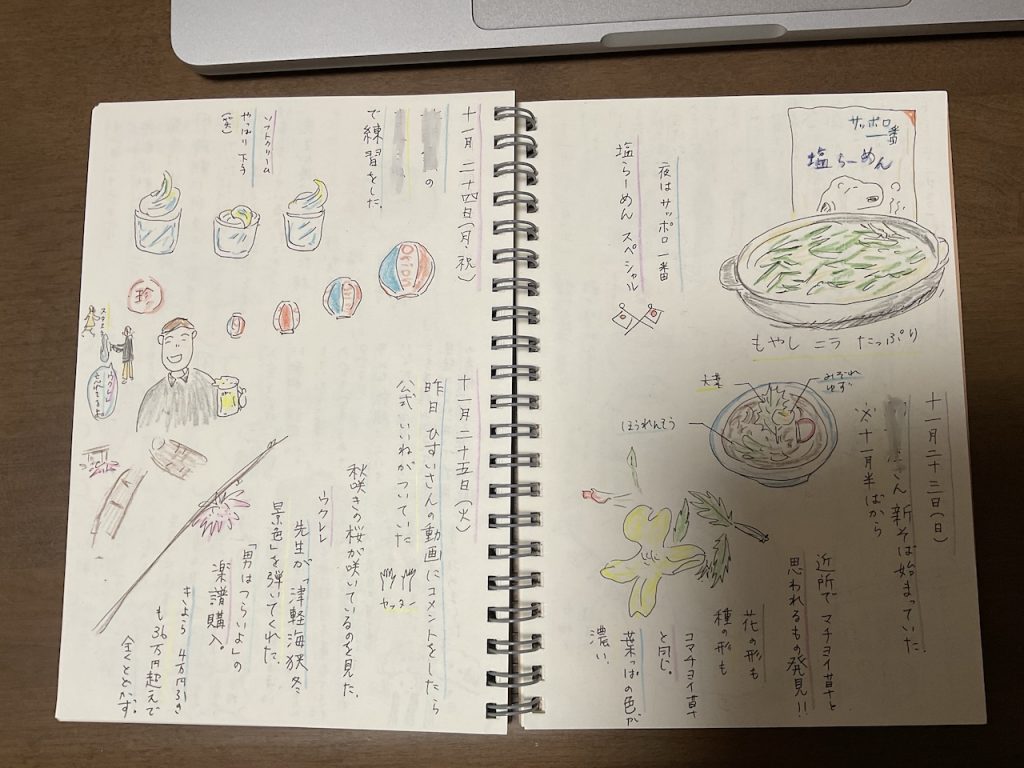 サッポロ
一番
塩らーめん
夜はサッポロ一番
塩らーめん スペシャル
もやし ニラ たっぷり
十一月二十三日(日)
さん 新そば始まっていた
※十一月半ばから
大葉
みぞれ
ゆず
ほうれんそう
近所でマチヨイ草と
思われるもの発見!!
花の形も
種の形も
コマチヨイ草
と同じ。
葉っぱの色が
濃い。
十一月二十四日(月・祝)
の
で練習をした。
ソフトクリーム
やっぱり下手
(笑)
Orion
珍
ウクレレ
十一月二十五日(火)
昨日 ひすいさんの動画にコメントをしたら
公式 いいねがついていた
ヤッター
秋咲きの桜が咲いているのを見た。
ウクレレ
先生が「津軽海峡冬
景色」を弾いてくれた。
「男はつらいよ」の
楽譜購入。
4万円引き
も36万円超えで
全くとどかず。